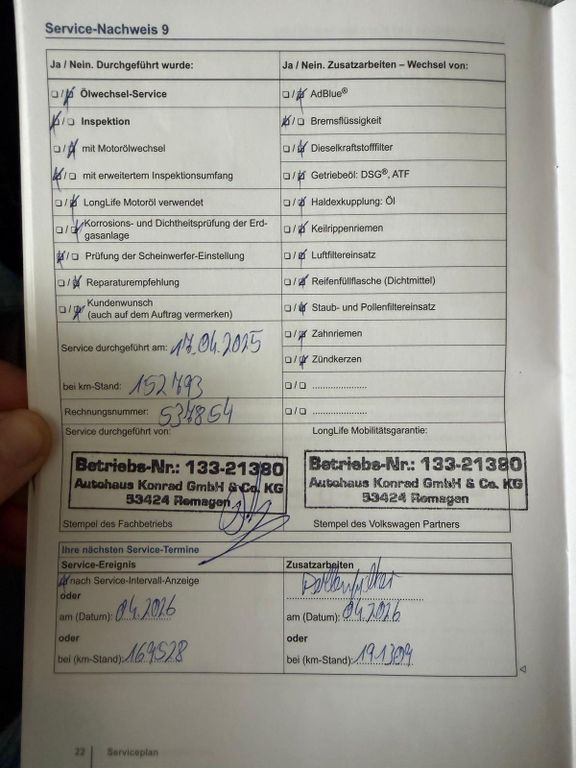 Service-Nachweis 9
Ja / Nein. Durchgeführt wurde:
Ölwechsel-Service
Inspektion
mit Motorölwechsel
mit erweitertem Inspektionsumfang
LongLife Motoröl verwendet
Korrosions- und Dichtheitsprüfung der Erd-
gasanlage
Prüfung der Scheinwerfer-Einstellung
Reparaturempfehlung
Kundenwunsch
(auch auf dem Auftrag vermerken)
Service durchgeführt am: 17.04.2025
bei km-Stand: 152793
Rechnungsnummer: 537854
Service durchgeführt von:
Betriebs-Nr.: 133-21380
Autohaus Konrad GmbH & Co. KG
53424 Remagen
Stempel des Fachbetriebs
Ja / Nein. Zusatzarbeiten – Wechsel von:
AdBlue®
Bremsflüssigkeit
Dieselkraftstofffilter
Getriebeöl: DSG®, ATF
Haldexkupplung: Öl
Keilrippenriemen
Luftfiltereinsatz
Reifenfüllflasche (Dichtmittel)
Staub- und Pollenfiltereinsatz
Zahnriemen
Zündkerzen
LongLife Mobilitätsgarantie:
Betriebs-Nr.: 133-21380
Autohaus Konrad GmbH & Co. KG
53424 Remagen
Stempel des Volkswagen Partners
Ihre nächsten Service-Termine
Service-Ereignis
nach Service-Intervall-Anzeige
oder
am (Datum): 04.2026
oder
bei (km-Stand): 169528
Zusatzarbeiten
Pollenfilter
am (Datum): 04.2026
oder
bei (km-Stand): 191309
22 Serviceplan